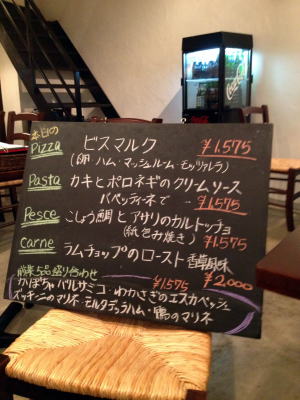 本日の
Pizza ビスマルク ¥1.575
(卵・ハム・マッシュルーム・モッツァレラ)
Pasta カキとポロネギのクリームソース
パペッティーネで ¥1.575
Pesce こしょう鯛とアサリのカルトッチョ
(紙包み焼き) ¥1.575
carne ラムチョップのロースト 香草風味
¥2,000
前菜5品盛り合わせ ¥1.575
かぼちゃバルサミコ・わかさぎのエスカベッシュ
ズッキーニのマリネ・モルタデッラハム・鶏のマリネ